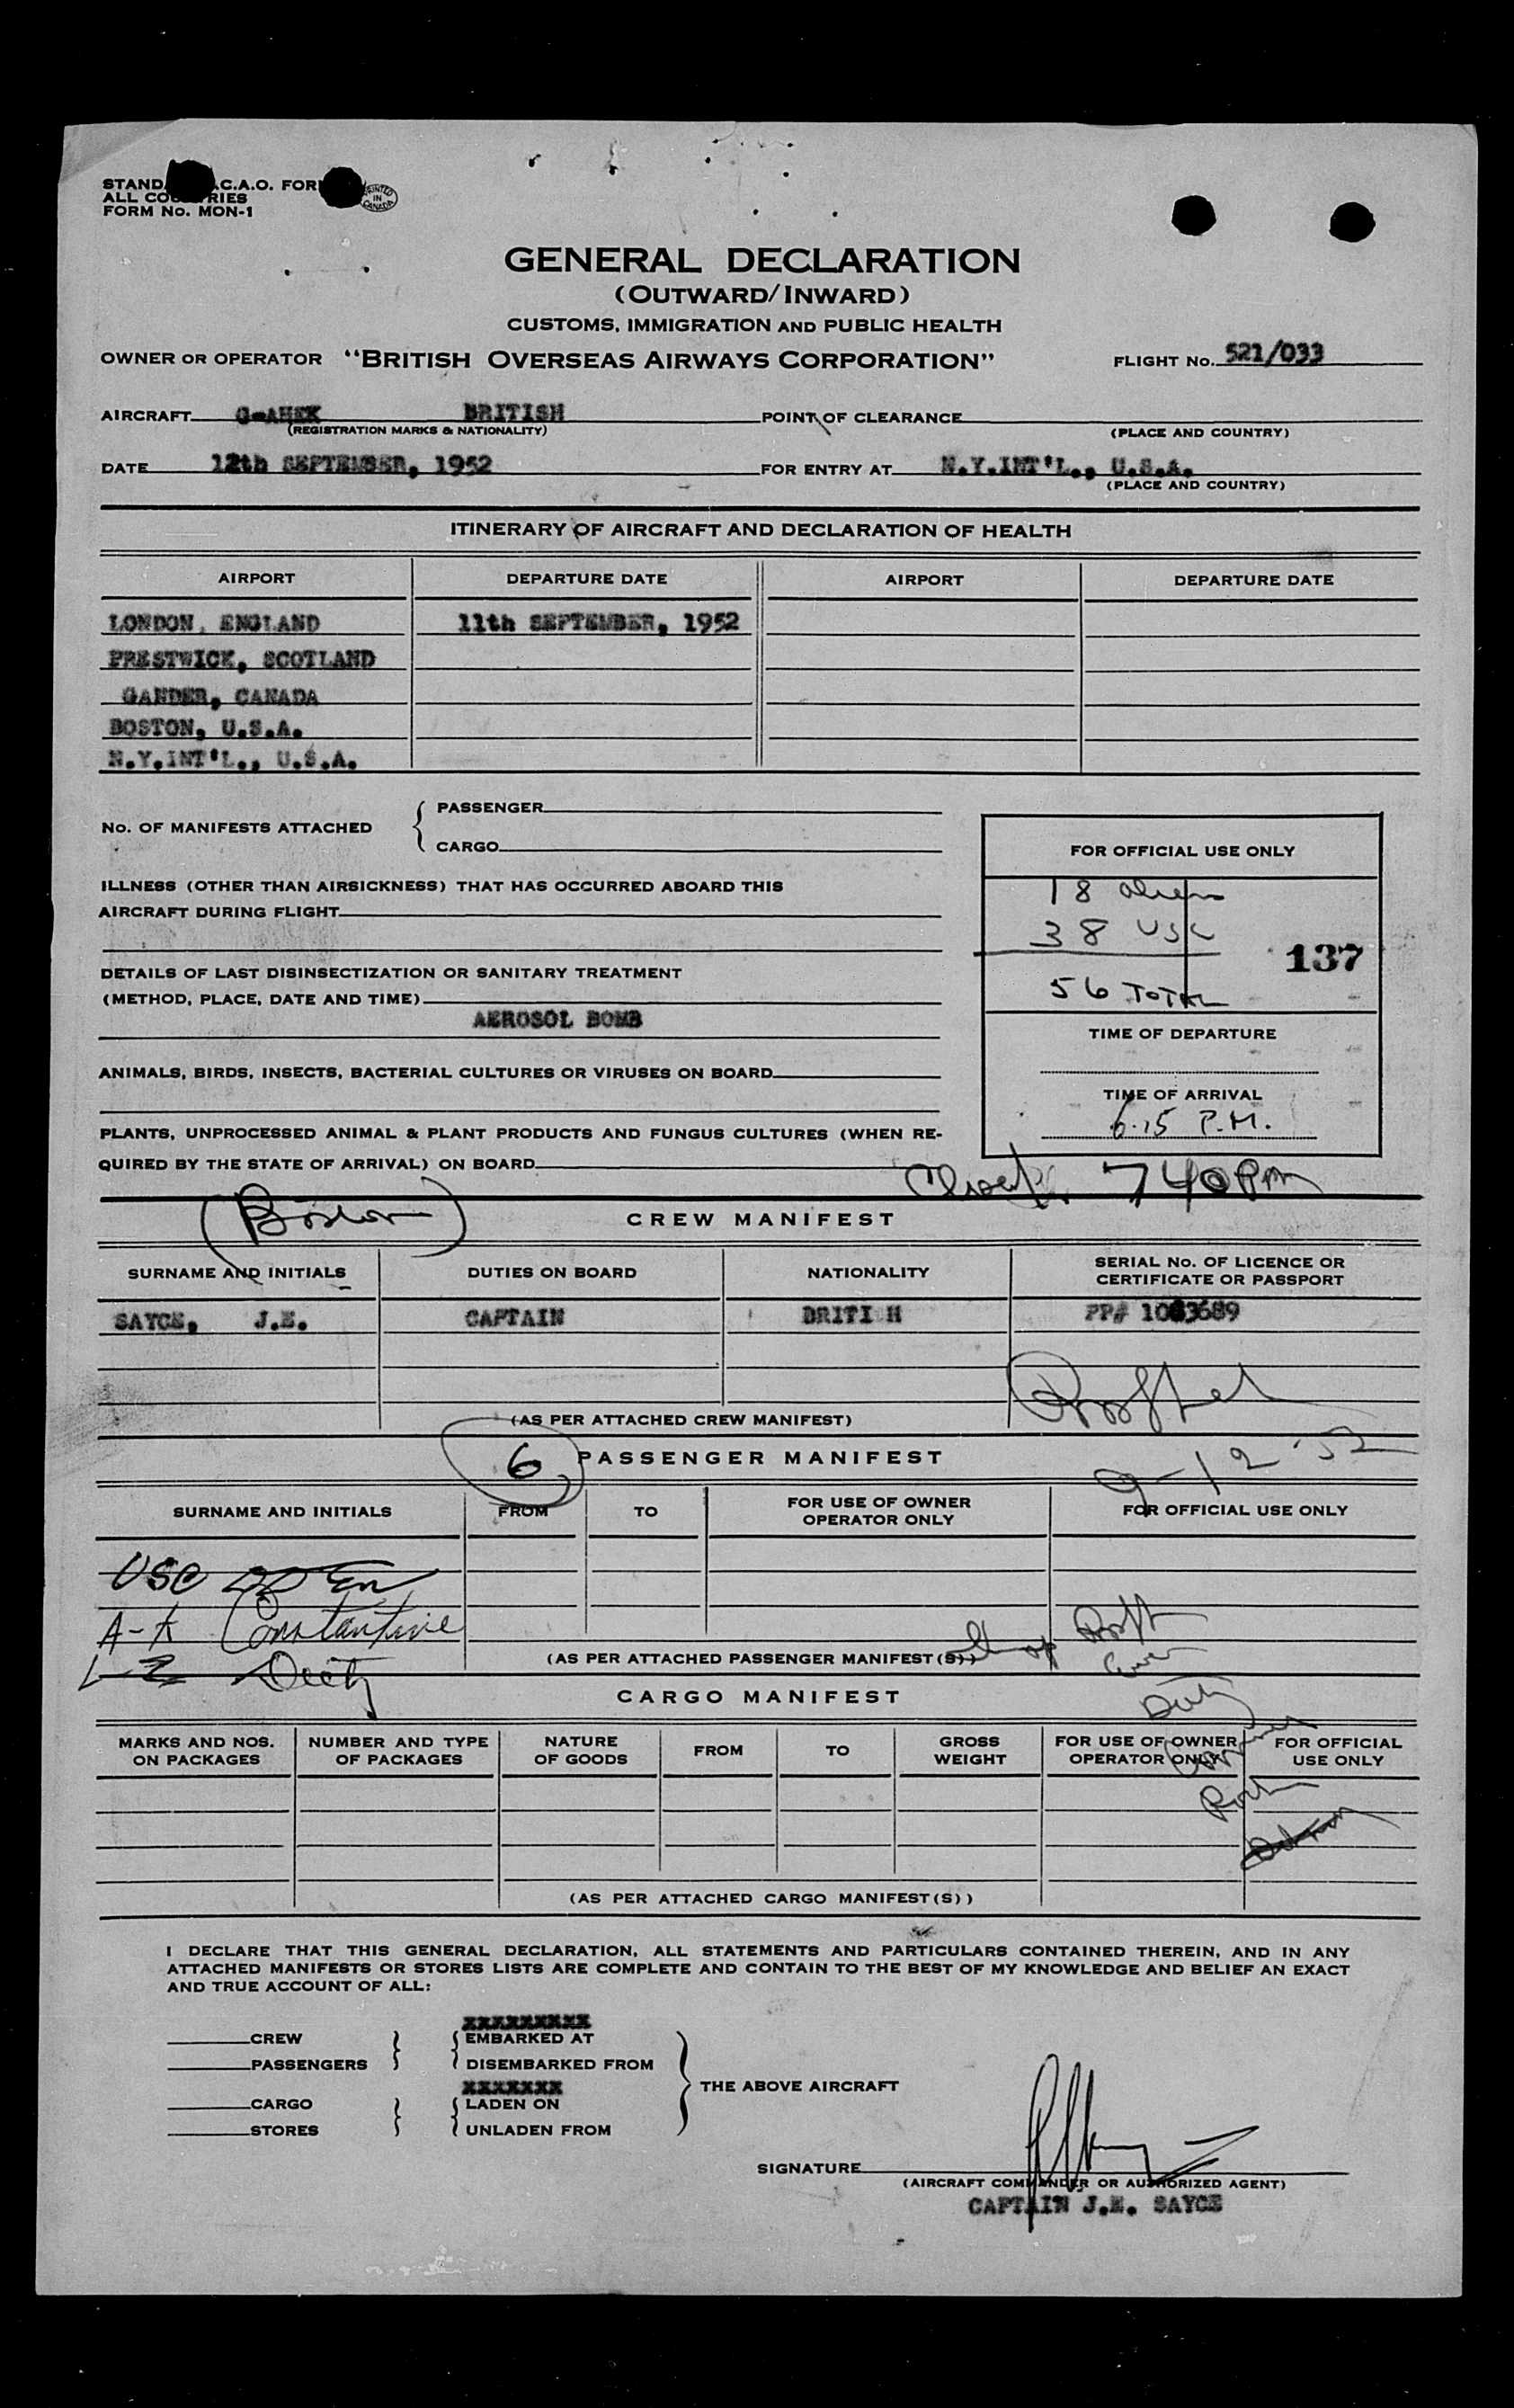 STAND C.A.O. FOR
ALL CO RIES
FORM No. MON-1
PRINTED IN CANADA
GENERAL DECLARATION
(OUTWARD/INWARD)
CUSTOMS, IMMIGRATION AND PUBLIC HEALTH
OWNER OR OPERATOR "BRITISH OVERSEAS AIRWAYS CORPORATION" FLIGHT No. 521/033
AIRCRAFT G-AHEK BRITISH POINT OF CLEARANCE
(REGISTRATION MARKS & NATIONALITY) (PLACE AND COUNTRY)
DATE 12th SEPTEMBER, 1952 FOR ENTRY AT N.Y.INT'L., U.S.A.
(PLACE AND COUNTRY)
ITINERARY OF AIRCRAFT AND DECLARATION OF HEALTH
AIRPORT DEPARTURE DATE AIRPORT DEPARTURE DATE
LONDON, ENGLAND 11th SEPTEMBER, 1952
PRESTWICK, SCOTLAND
GANDER, CANADA
BOSTON, U.S.A.
N.Y.INT'L., U.S.A.
No. OF MANIFESTS ATTACHED { PASSENGER
CARGO
FOR OFFICIAL USE ONLY
18 aliens
38 USC
137
56 TOTAL
ILLNESS (OTHER THAN AIRSICKNESS) THAT HAS OCCURRED ABOARD THIS
AIRCRAFT DURING FLIGHT
DETAILS OF LAST DISINSECTIZATION OR SANITARY TREATMENT
(METHOD, PLACE, DATE AND TIME)
AEROSOL BOMB
TIME OF DEPARTURE
ANIMALS, BIRDS, INSECTS, BACTERIAL CULTURES OR VIRUSES ON BOARD
TIME OF ARRIVAL
6.15 P.M.
PLANTS, UNPROCESSED ANIMAL & PLANT PRODUCTS AND FUNGUS CULTURES (WHEN RE-
QUIRED BY THE STATE OF ARRIVAL) ON BOARD
740 PM
(Boston)
CREW MANIFEST
SURNAME AND INITIALS DUTIES ON BOARD NATIONALITY SERIAL No. OF LICENCE OR
CERTIFICATE OR PASSPORT
SAYCE, J.E. CAPTAIN BRITI H PP# 1063689
(AS PER ATTACHED CREW MANIFEST)
6 PASSENGER MANIFEST
9-12-52
SURNAME AND INITIALS FROM TO FOR USE OF OWNER
OPERATOR ONLY FOR OFFICIAL USE ONLY
USC
A-K Constantine
L-Z
(AS PER ATTACHED PASSENGER MANIFEST(S))
CARGO MANIFEST
MARKS AND NOS.
ON PACKAGES NUMBER AND TYPE
OF PACKAGES NATURE
OF GOODS FROM TO GROSS
WEIGHT FOR USE OF OWNER
OPERATOR ONLY FOR OFFICIAL
USE ONLY
(AS PER ATTACHED CARGO MANIFEST(S))
I DECLARE THAT THIS GENERAL DECLARATION, ALL STATEMENTS AND PARTICULARS CONTAINED THEREIN, AND IN ANY
ATTACHED MANIFESTS OR STORES LISTS ARE COMPLETE AND CONTAIN TO THE BEST OF MY KNOWLEDGE AND BELIEF AN EXACT
AND TRUE ACCOUNT OF ALL:
XXXXXXXXX
CREW EMBARKED AT
PASSENGERS DISEMBARKED FROM
XXXXXXX THE ABOVE AIRCRAFT
CARGO LADEN ON
STORES UNLADEN FROM
SIGNATURE
(AIRCRAFT COMMANDER OR AUTHORIZED AGENT)
CAPTAIN J.E. SAYCE